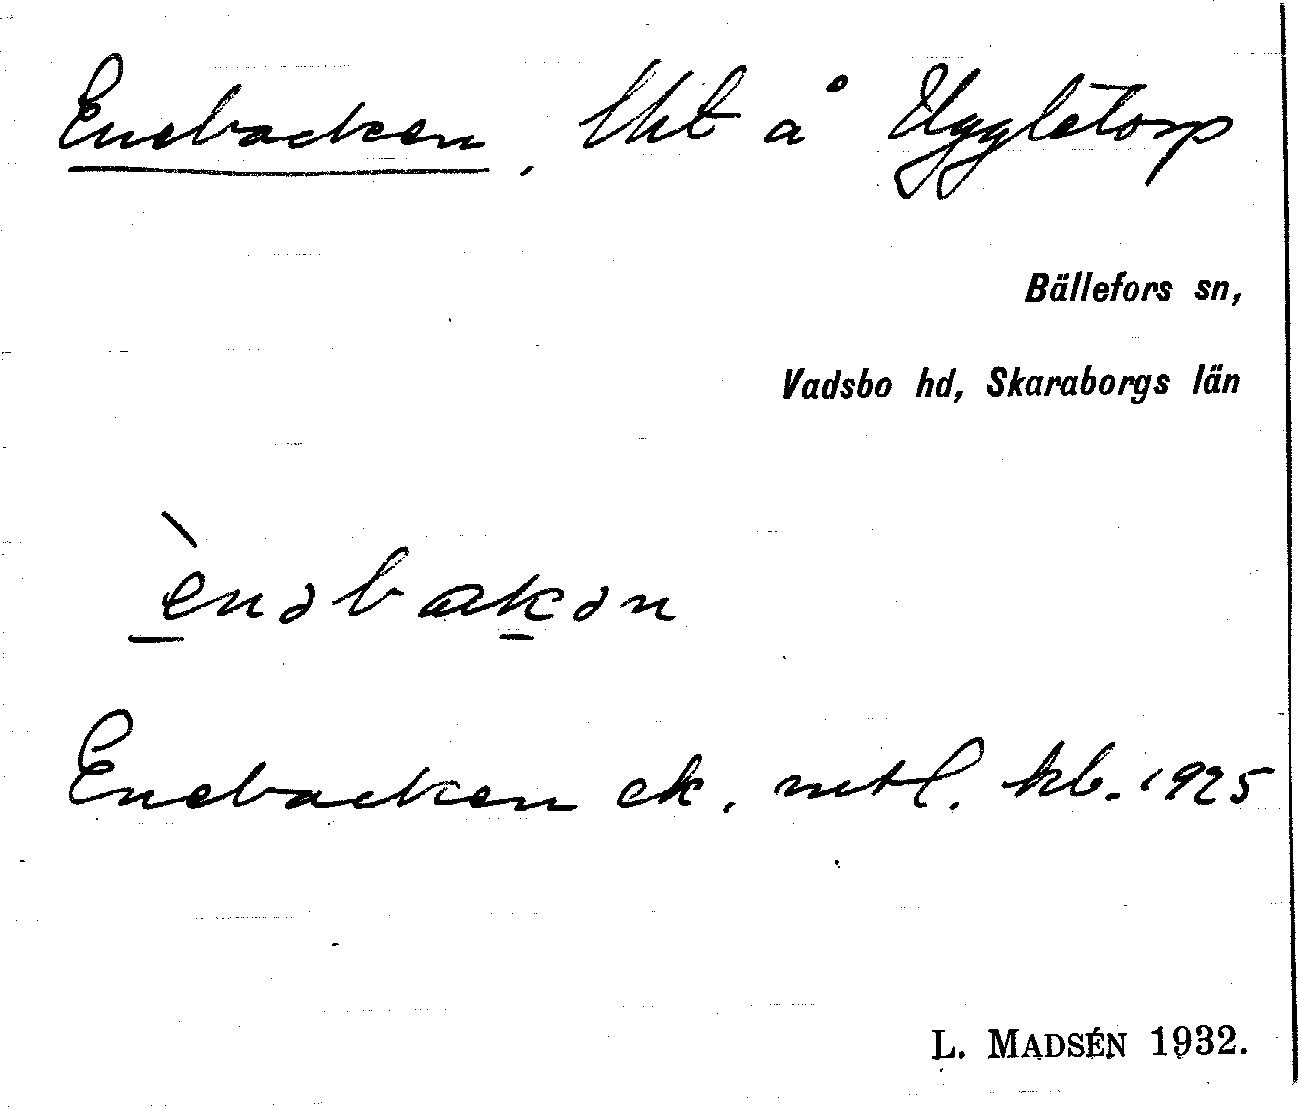 Enebacken, lht å Uggletorp
Bällefors sn,
Vadsbo hd, Skaraborgs län
ènəbakən
Enebacken ek. mtl. kb. 1925
L. MADSÉN 1932.